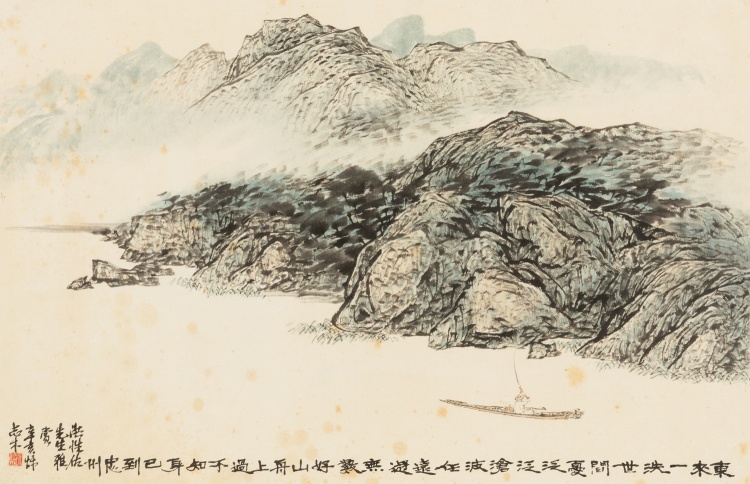 東來一洗世間憂泛泛滄波任遠遊無數好山舟上過不知身已到忠州
先生雅
賞
辛亥秋